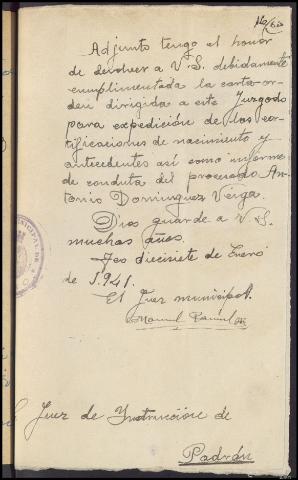 Adjunto tengo el honor
de devolver a V.S. debidamente
cumplimentada la carta-or-
den dirigida a este Juzgado
para expedición de las cer-
tificaciones de nacimiento y
antecedentes así como informe
de conducta del procesado An-
tonio Dominguez Veiga.
Dios guarde a V.S.
muchos años.
Teo diecisiete de Enero
de 1.941.
El Juez municipal.
Manuel
Juez de Instrucción de
Padrón